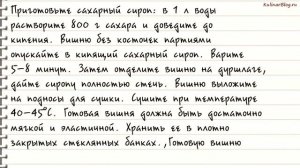 KulinarBlog.ru
Приготовьте сахарный сироп: в 1 л воды
растворите 800 г сахара и доведите до
кипения. Вишню без косточек партиями
опускайте в кипящий сахарный сироп. Варите
5-8 минут. Затем отделите вишню на дуршлаге,
дайте сиропу полностью стечь. Вишню выложите
на подносы для сушки. Сушите при температуре
40-45°С. Готовая вишня должна быть достаточно
мягкой и эластичной. Хранить ее в плотно
закрытых стеклянных банках. , Готовую вишню